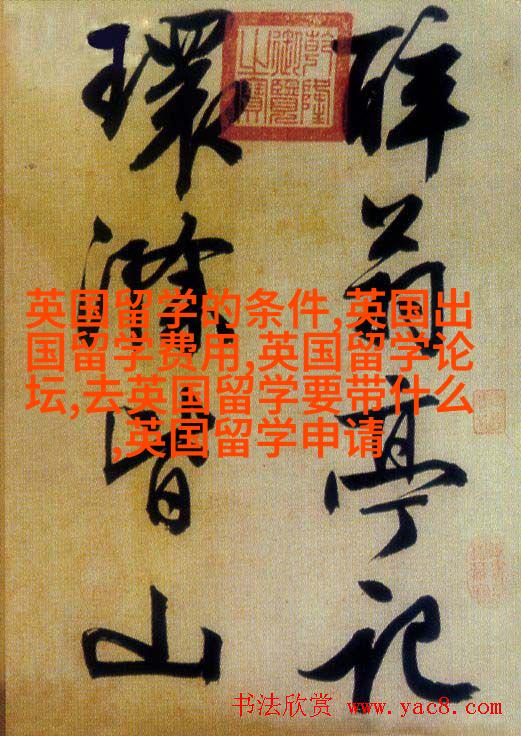 醉翁亭记
環滁皆山
乾隆
御覽
之寶
英国留学的条件,英国出
国留学费用,英国留学论
坛,去英国留学要带什么
,英国留学申请
书法欣赏 www.yac8.com